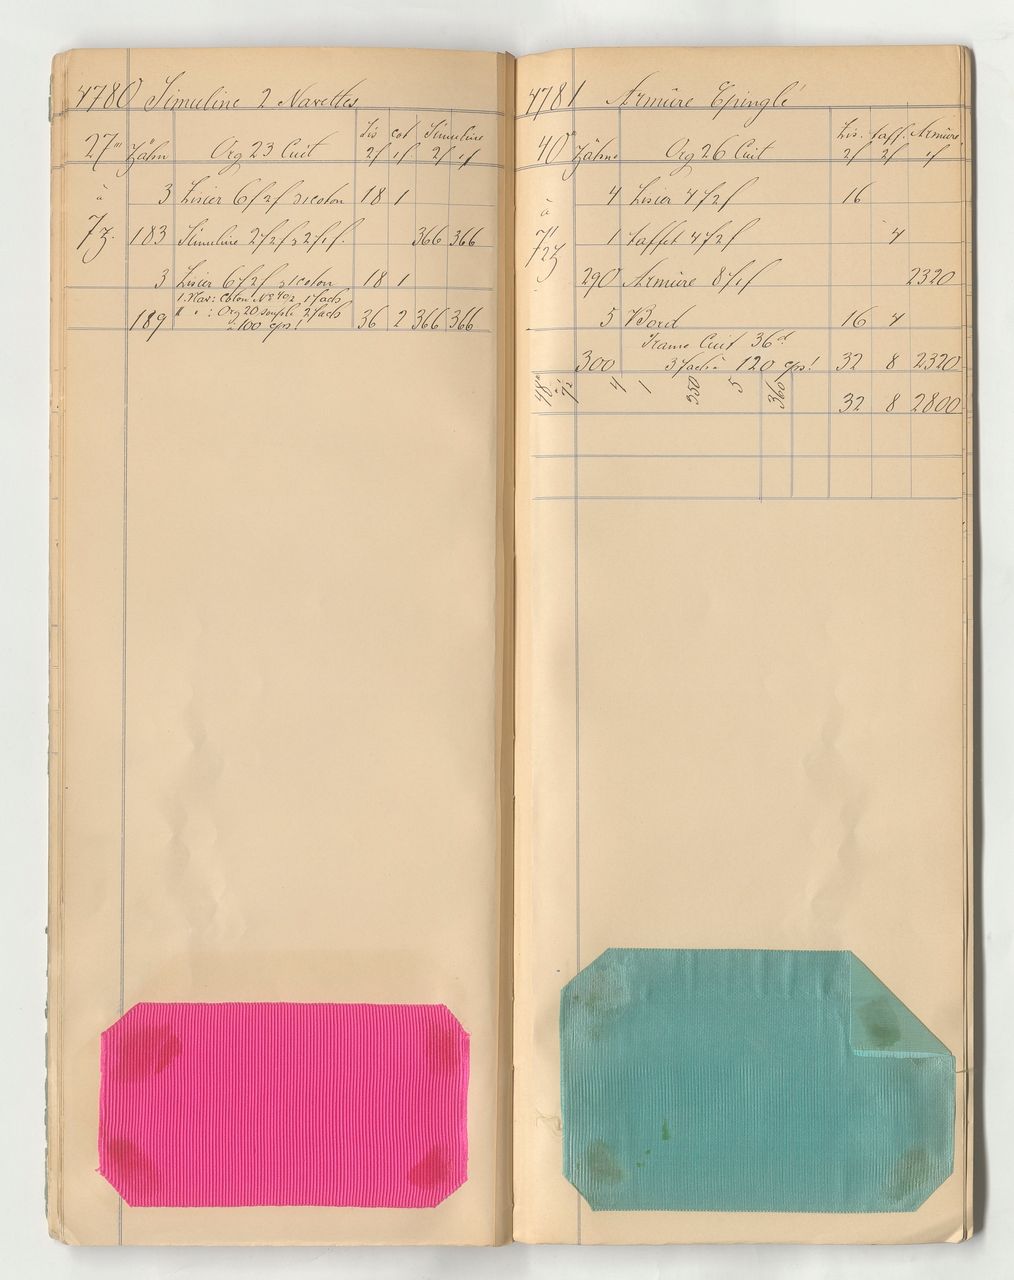 4780 Simuline 2 Navettes
27''' Zähn Org 23 Cuit Lis 2f cot 1f Simuline 2f 1f
à 3 Lisier 6f2f 18 1
7z. 183 Simuline 366 366
3 Lisier 6f2f 18 1
1. Nav: Coton 1fach
" " : Org 20 souple 2fach
189 à 100 cps! 36 2 366 366
4781 Armûre Epinglé
40''' Zähne Org 26 Cuit Lis. 2f taff. 2f Armûre 1f
4 Lisier 4f2f 16
à
1 taffet 4f2f 4
290 Armûre 8f1f 2320
5 Bord 16 4
Trame Cuit 36d
300 3fach à 120 cps! 32 8 2320
4 1 350 5 360 32 8 2800